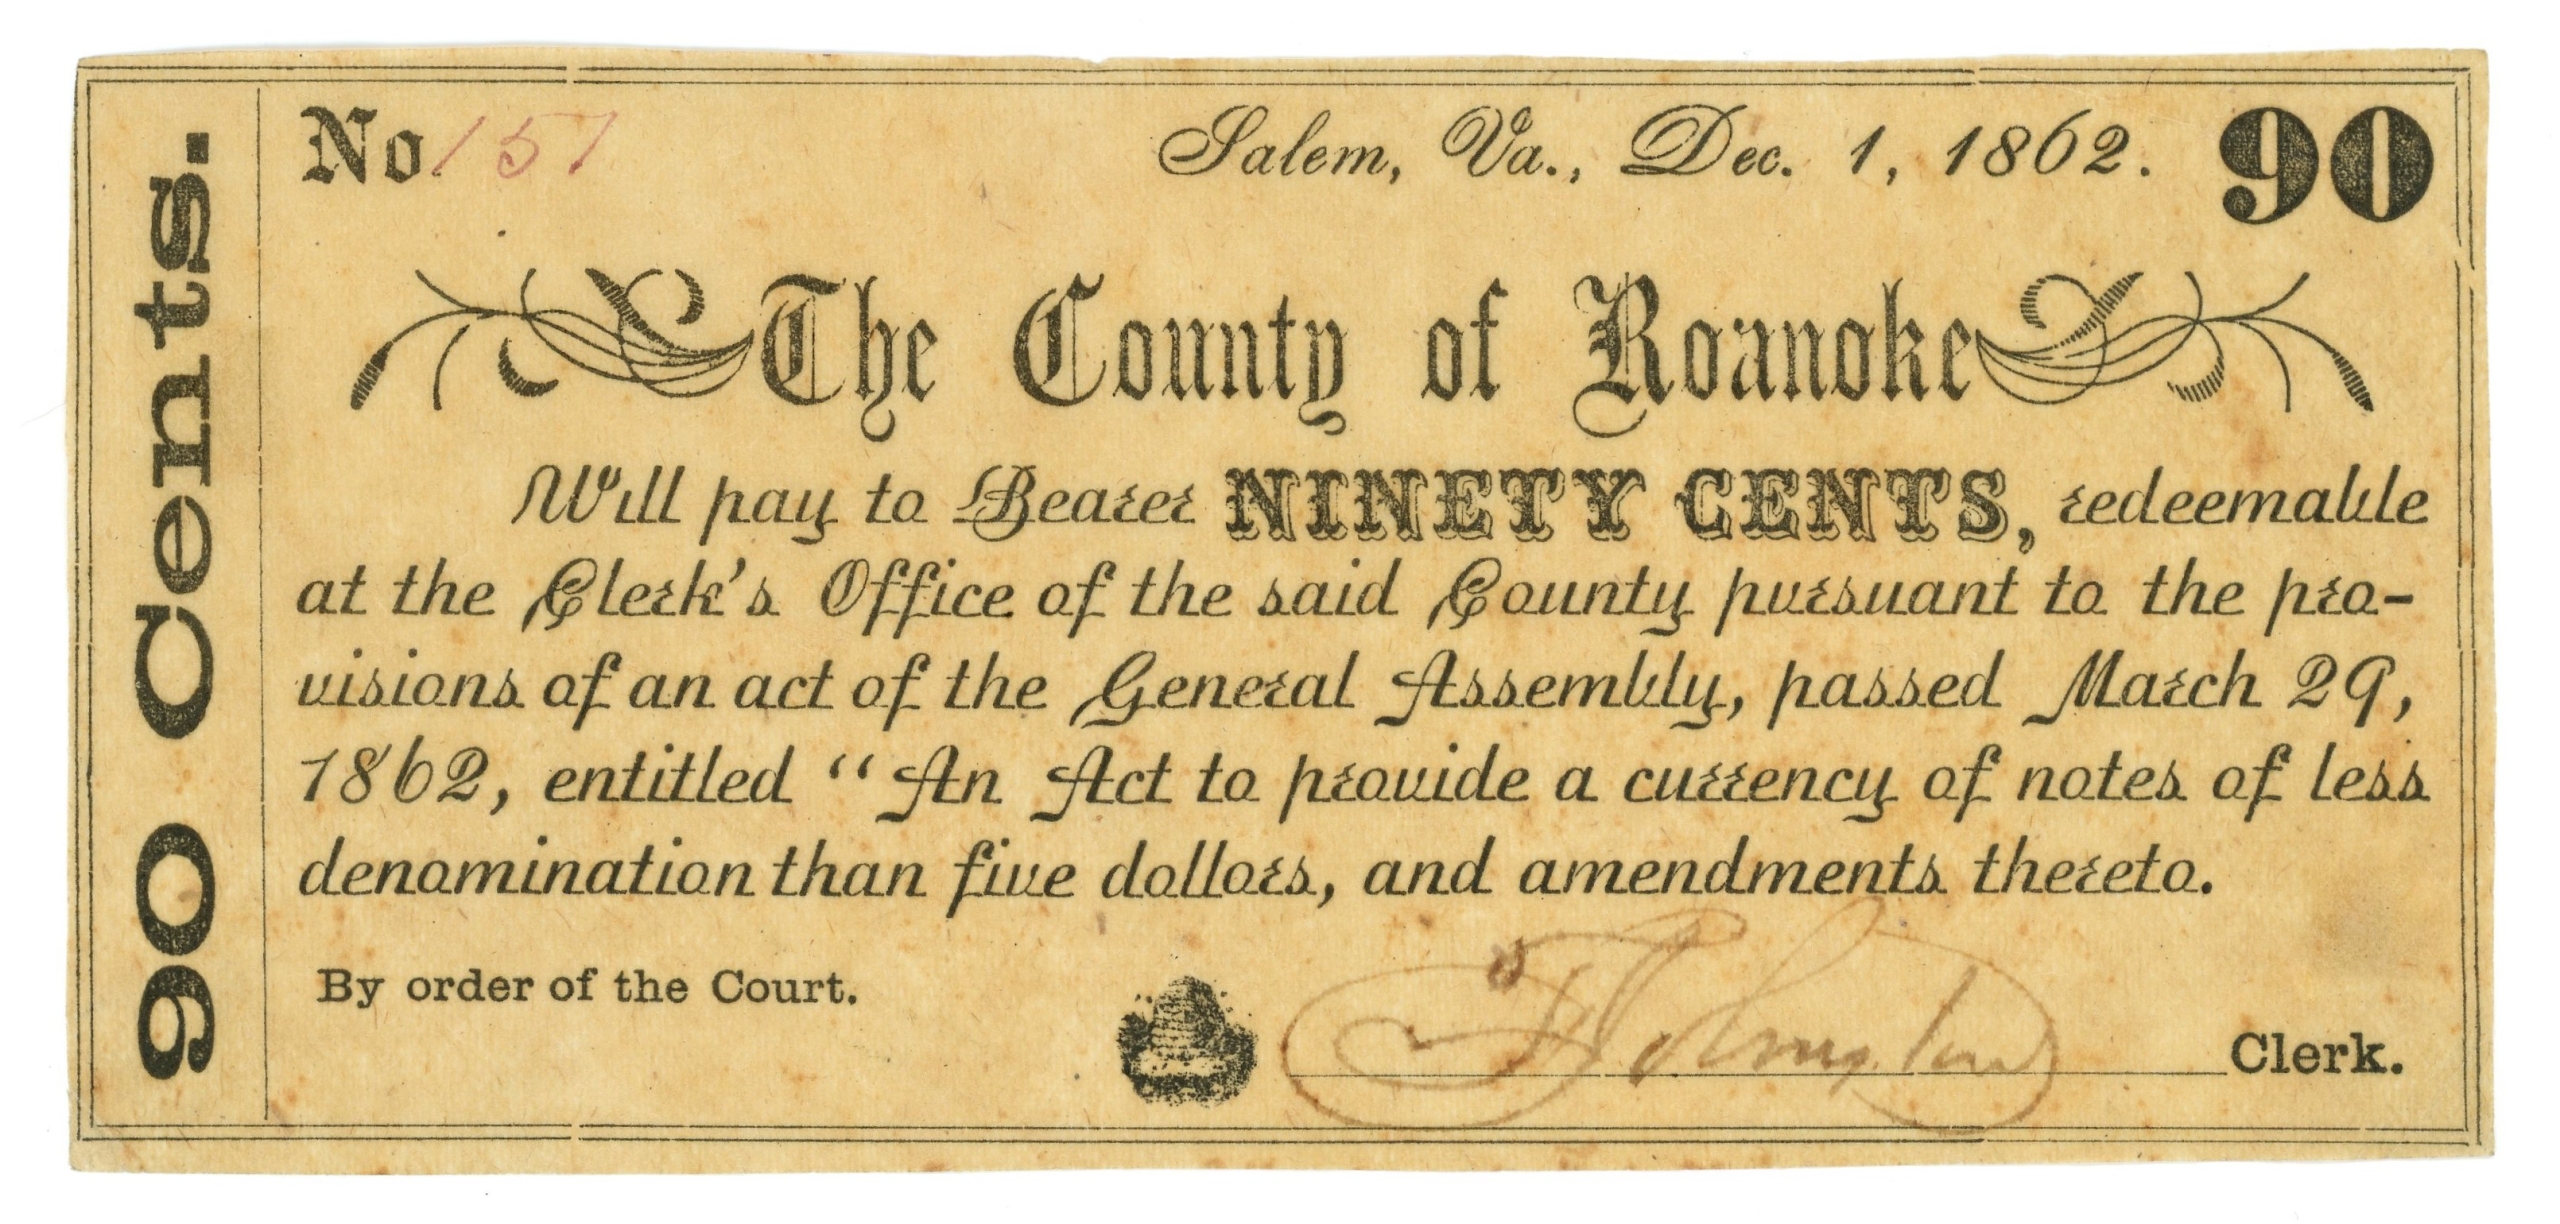 No 151 Salem, Va., Dec. 1, 1862. 90
90 Cents.
The County of Roanoke
Will pay to Bearer NINETY CENTS, redeemable
at the Clerk's Office of the said County pursuant to the pro-
visions of an act of the General Assembly, passed March 29,
1862, entitled “An Act to provide a currency of notes of less
denomination than five dollars, and amendments thereto.
By order of the Court.
Clerk.